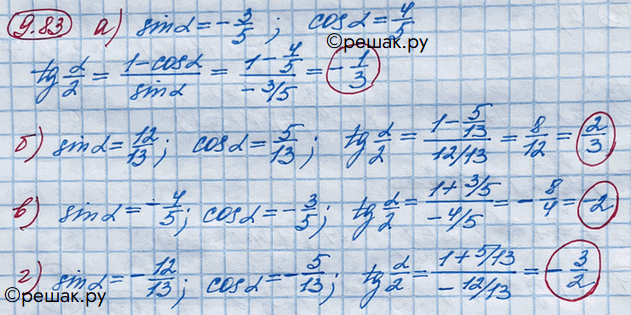 9.83 а) sinα = -3/5 ; cosα = 4/5
©решак.ру
tg α/2 = (1-cosα)/sinα = (1 - 4/5)/(-3/5) = -1/3
б) sinα = 12/13 ; cosα = 5/13 ; tg α/2 = (1 - 5/13)/(12/13) = 8/12 = 2/3
в) sinα = -4/5 ; cosα = -3/5 ; tg α/2 = (1 + 3/5)/(-4/5) = -8/4 = -2
г) sinα = -12/13 ; cosα = -5/13 ; tg α/2 = (1 + 5/13)/(-12/13) = -3/2
©решак.ру